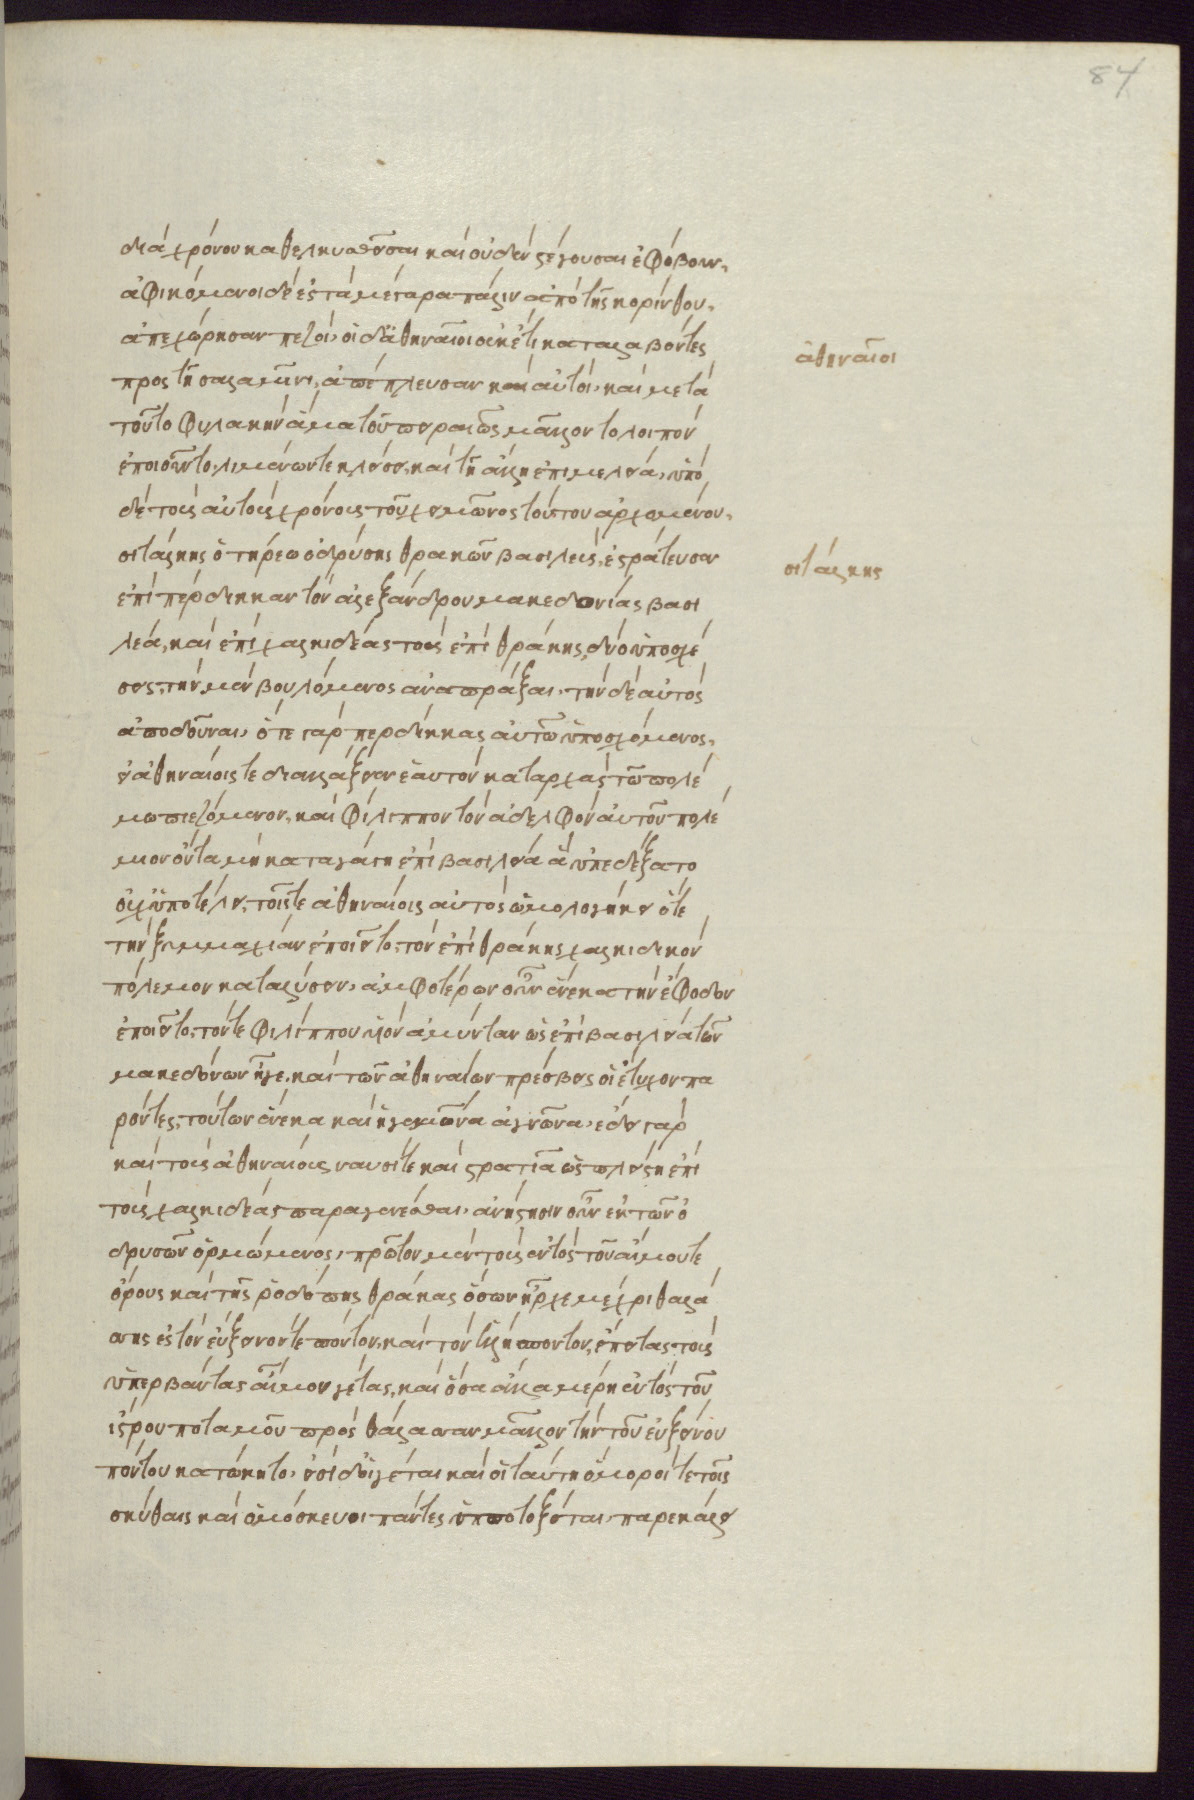 84
διά χρόνου καθελκυσθεῖσαι καὶ οὐδὲν στέγουσαι ἐφόβουν,
ἀφικόμενοι δὲ ἐς τὰ μέγαρα πάλιν ἀπὸ τῆς κορίνθου,
ἀπεχώρησαν πεζοί, οἱ δ' ἀθηναῖοι οὐκ ἔτι καταλαβόντες
προς τῆ σαλαμῖνι, ἀπέπλευσαν καὶ αὐτοί, καὶ μετὰ
τοῦτο φυλακὴν ἅμα τοῦ πειραιῶς μᾶλλον τολοιπὸν
ἐποιοῦντο, λιμένων τε κλήσει, καὶ τῆ ἄλλη ἐπιμελεία, ὑπὸ
δὲ τοὺς αὐτοὺς χρόνους τοῦ χειμῶνος τούτου ἀρχομένου,
σιτάλκης ὁ τήρεω ὀδρύσης θρακῶν βασιλεύς, ἐστράτευσεν
ἐπὶ περδίκκαν τὸν ἀλεξάνδρου μακεδονίας βασι
λέα, καὶ ἐπὶ χαλκιδέας τοὺς ἐπὶ θράκης, δύο ὑποσχέ
σεις, τὴν μὲν βουλόμενος ἀναπρᾶξαι, τὴν δὲ αὐτὸς
ἀποδοῦναι, ὅτε γὰρ περδίκκας αὐτῶ ὑποσχόμενος,
εἰ ἀθηναίοις τε διαλλάξειεν ἑαυτὸν καταρχὰς τῶ πολέ
μω πιεζόμενον, καὶ φίλιππον τὸν ἀδελφὸν αὐτοῦ πολέ
μιον ὄντα μὴ καταγάγοι ἐπὶ βασιλεία ἃ ὑπεδέξατο
οὐχ ὑποτελεῖ, τοῖς τε ἀθηναίοις αὐτὸς ὡμολογήκει ὅτε
τὴν ξυμμαχίαν ἐποιεῖτο, τὸν ἐπὶ θράκης χαλκιδικὸν
πόλεμον καταλύσειν, ἀμφοτέρων οὖν ἕνεκα τὴν ἔφοδον
ἐποιεῖτο, τόν τε φιλίππου υἱὸν ἀμύνταν ὡς ἐπὶ βασιλεία τῶν
μακεδόνων ἦγε, καὶ τῶν ἀθηναίων πρέσβεις οἳ ἔτυχον πα
ρόντες, τούτων ἕνεκα καὶ ἡγεμόνα ἅγνωνα, ἔδει γὰρ
καὶ τοὺς ἀθηναίους ναυσί τε καὶ στρατιᾶ ὡς πλείστη ἐπὶ
τοὺς χαλκιδέας παραγενέσθαι, ἀνίστησιν οὖν ἐκ τῶν ὀ
δρυσῶν ὁρμώμενος, πρῶτον μὲν τοὺς ἐντὸς τοῦ αἵμου τε
ὄρους καὶ τῆς ῥοδόπης θράκας ὅσων ἦρχε μέχρι θαλά
σσης ἐς τὸν εὔξεινόν τε πόντον, καὶ τὸν ἑλλήσποντον, ἔπειτα τοὺς
ὑπερβάντας αἷμον γέτας, καὶ ὅσα ἄλλα μέρη ἐντὸς τοῦ
ἴστρου ποταμοῦ πρὸς θάλασσαν μᾶλλον τὴν τοῦ εὐξείνου
πόντου κατώκητο, εἰσὶ δ' οἱ γέται καὶ οἱ ταύτη ὅμοροί τε τοῖς
σκύθαις καὶ ὁμόσκευοι πάντες ἱπποτοξόται, παρεκάλει
ἀθηναῖοι
σιτάλκης